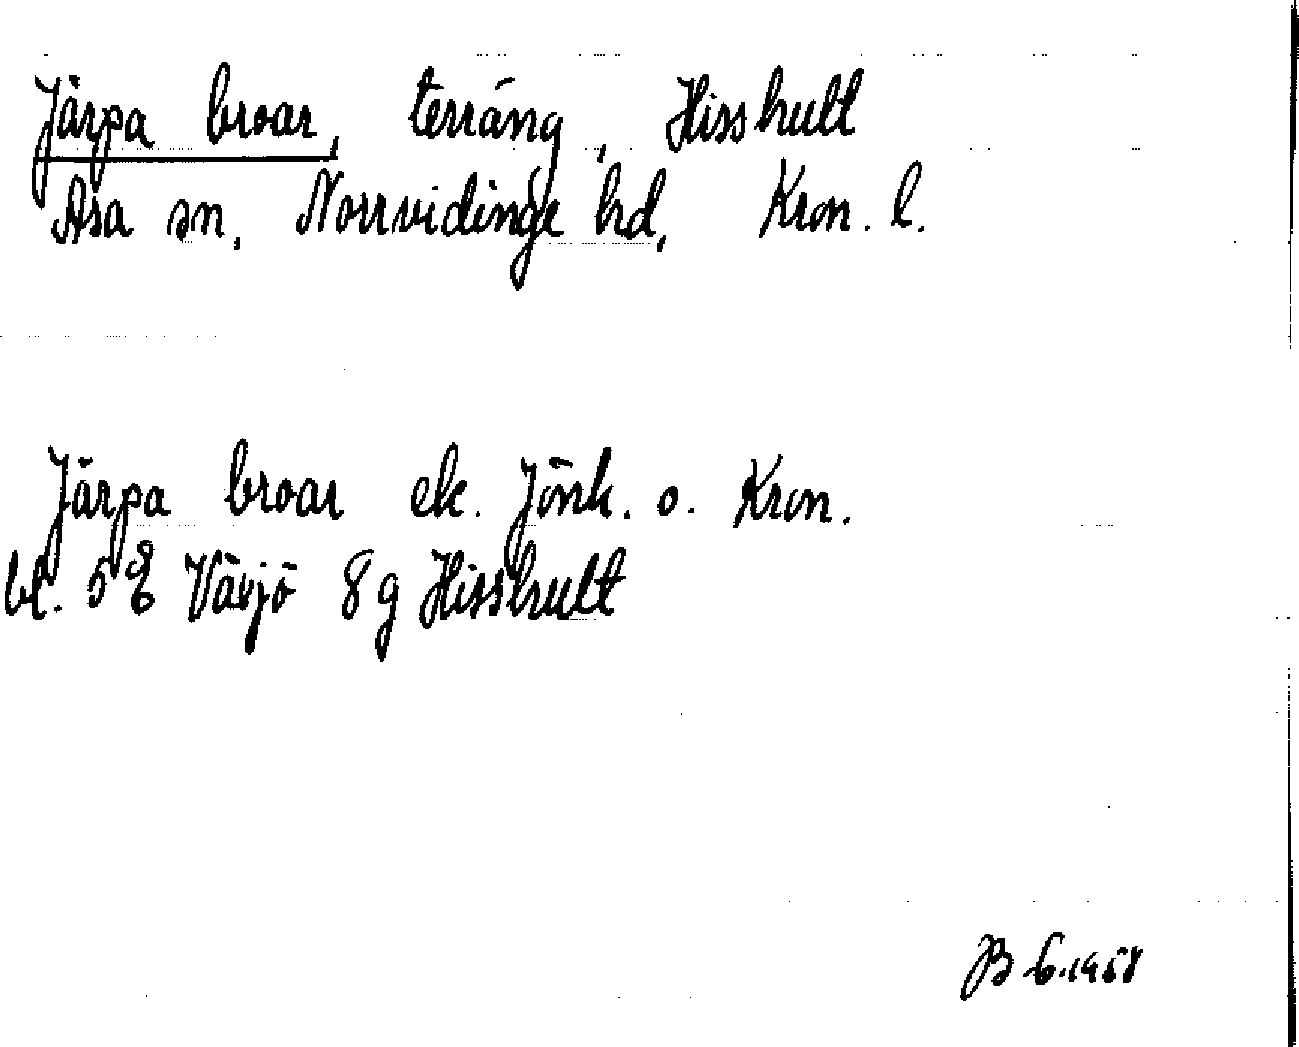 Järpa broar, terräng, Hisshult
Asa sn, Norrvidinge hd, Kron. l.
Järpa broar ek. Jönk. o. Kron.
bl. 5 E Växjö 8g Hisshult
JB 6.1958